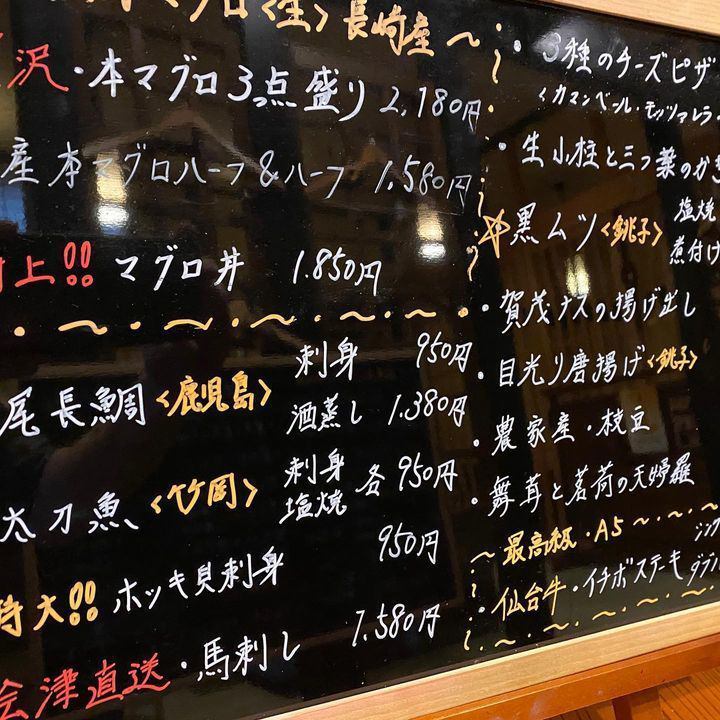 マグロ<生>長崎産～
沢・本マグロ3点盛り 2,180円
産本マグロハーフ&ハーフ 1.580円
上!! マグロ丼 1.850円
尾長鯛<鹿児島> 刺身 950円
酒蒸し 1.380円
太刀魚<竹岡> 刺身 塩焼 各950円
特大!! ホッキ貝刺身 950円
会津直送・馬刺し 1.580円
・3種のチーズピザ
<カマンベール・モッツァレラ・
・生小柱と三つ葉のかき
☆黒ムツ<銚子> 塩焼
煮付け
・賀茂ナスの揚げ出し
・目光り唐揚げ<銚子>
・農家産・枝豆
・舞茸と茗荷の天婦羅
～最高級・A5～
・仙台牛・イチボステーキ